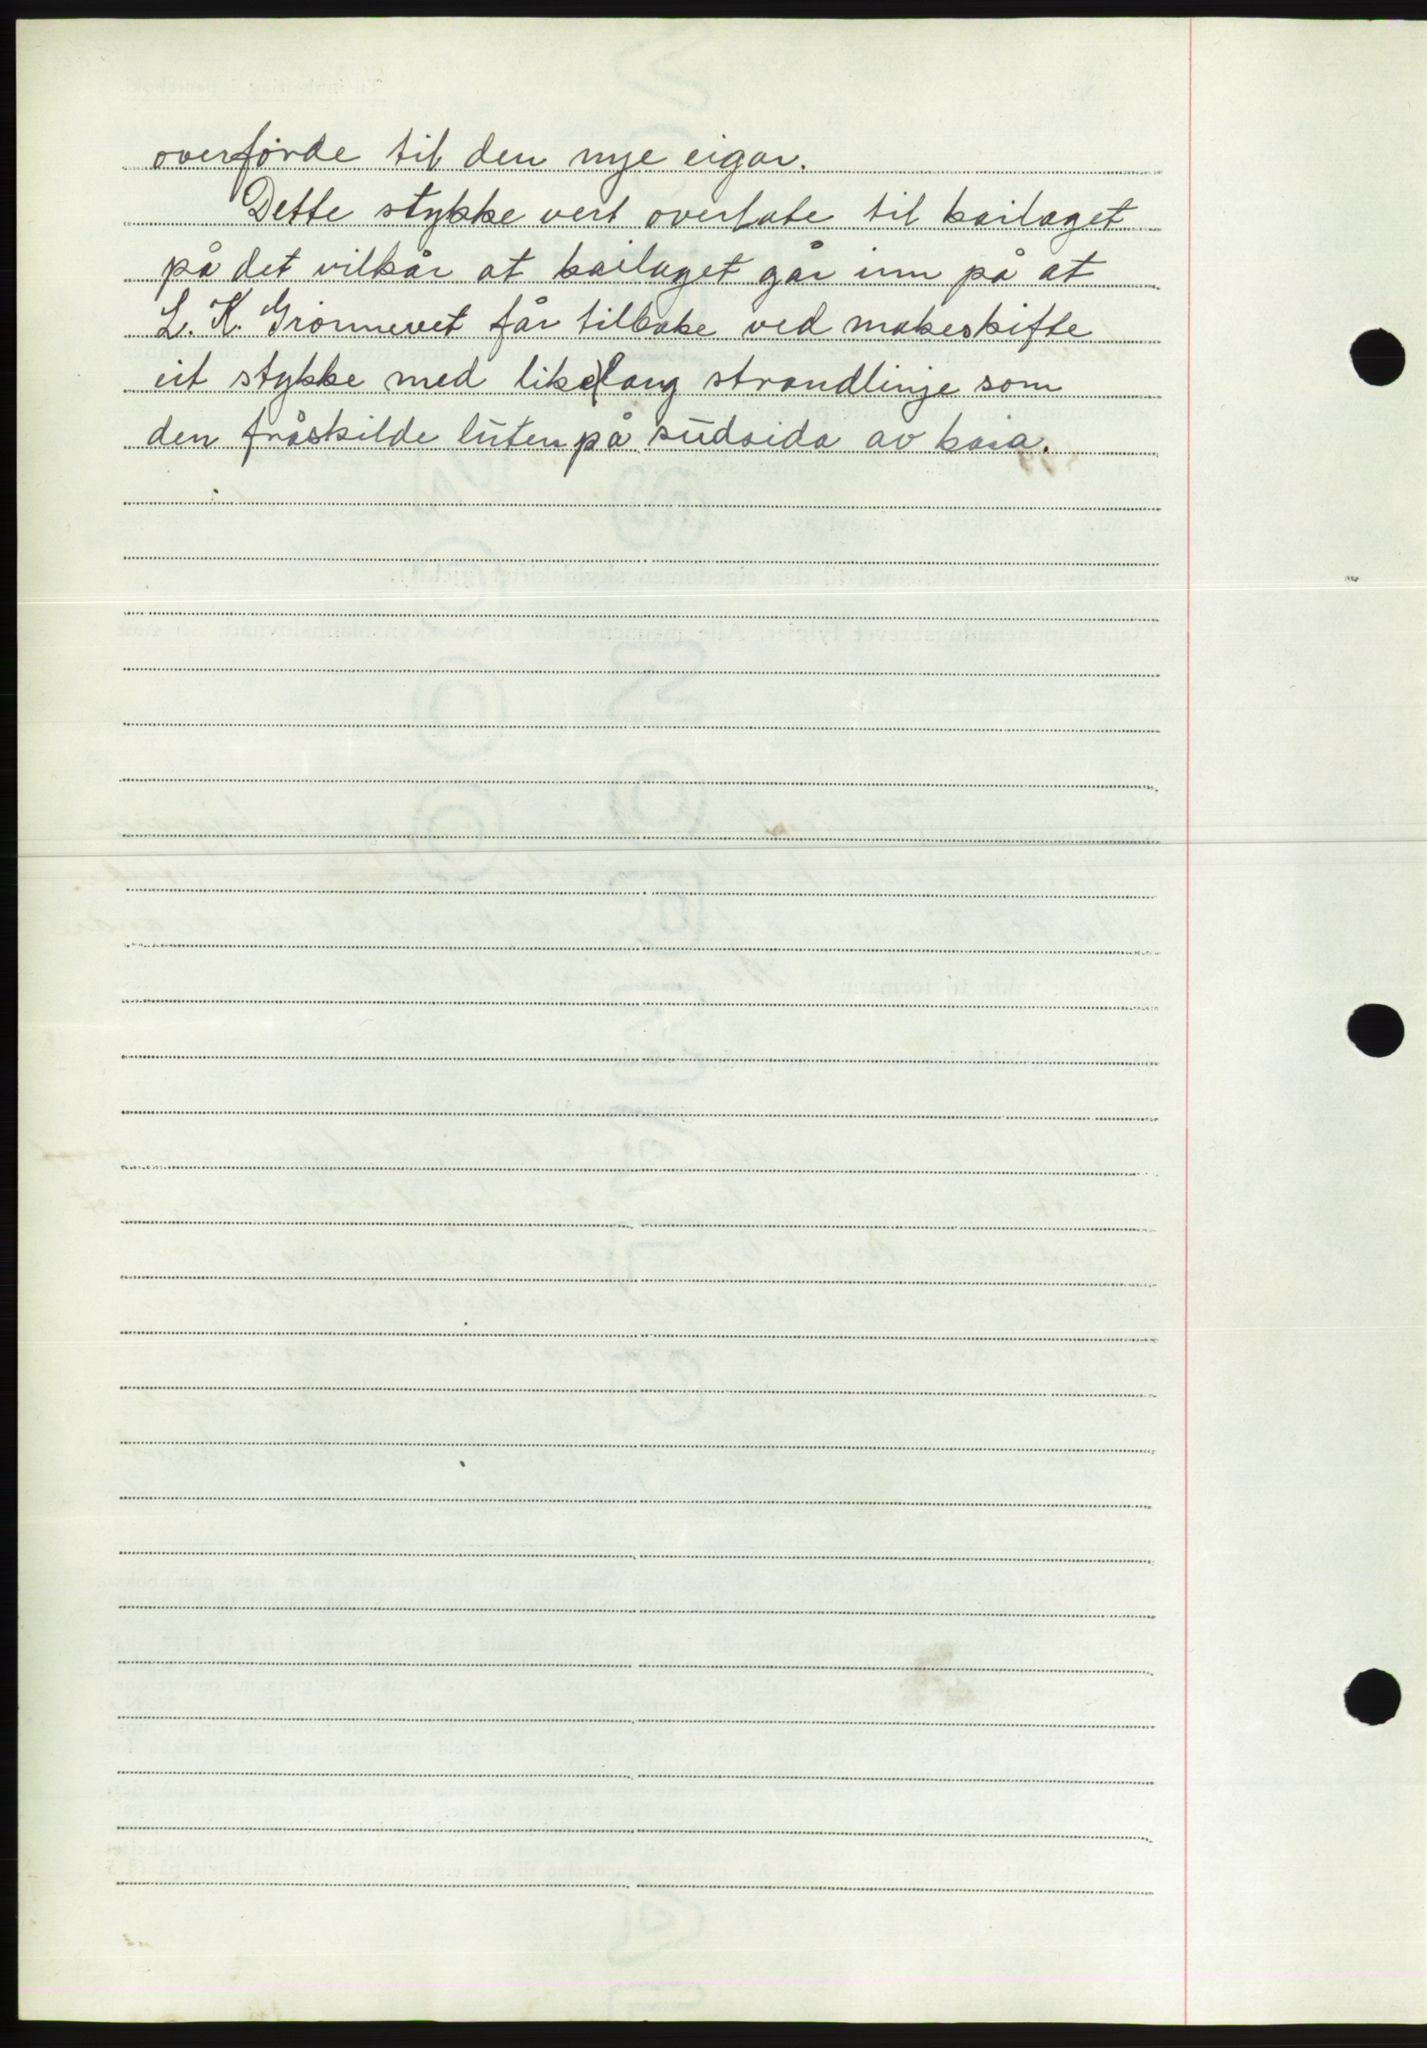 overførde til den nye eigar.
Dette stykke vert overlate til kailaget
på det vilkår at kailaget går inn på at
L. K. Grönnevet får tilbake ved makeskifte
eit stykke med like lang strandlinje som
den fråskilde luten på sudsida av kaia.